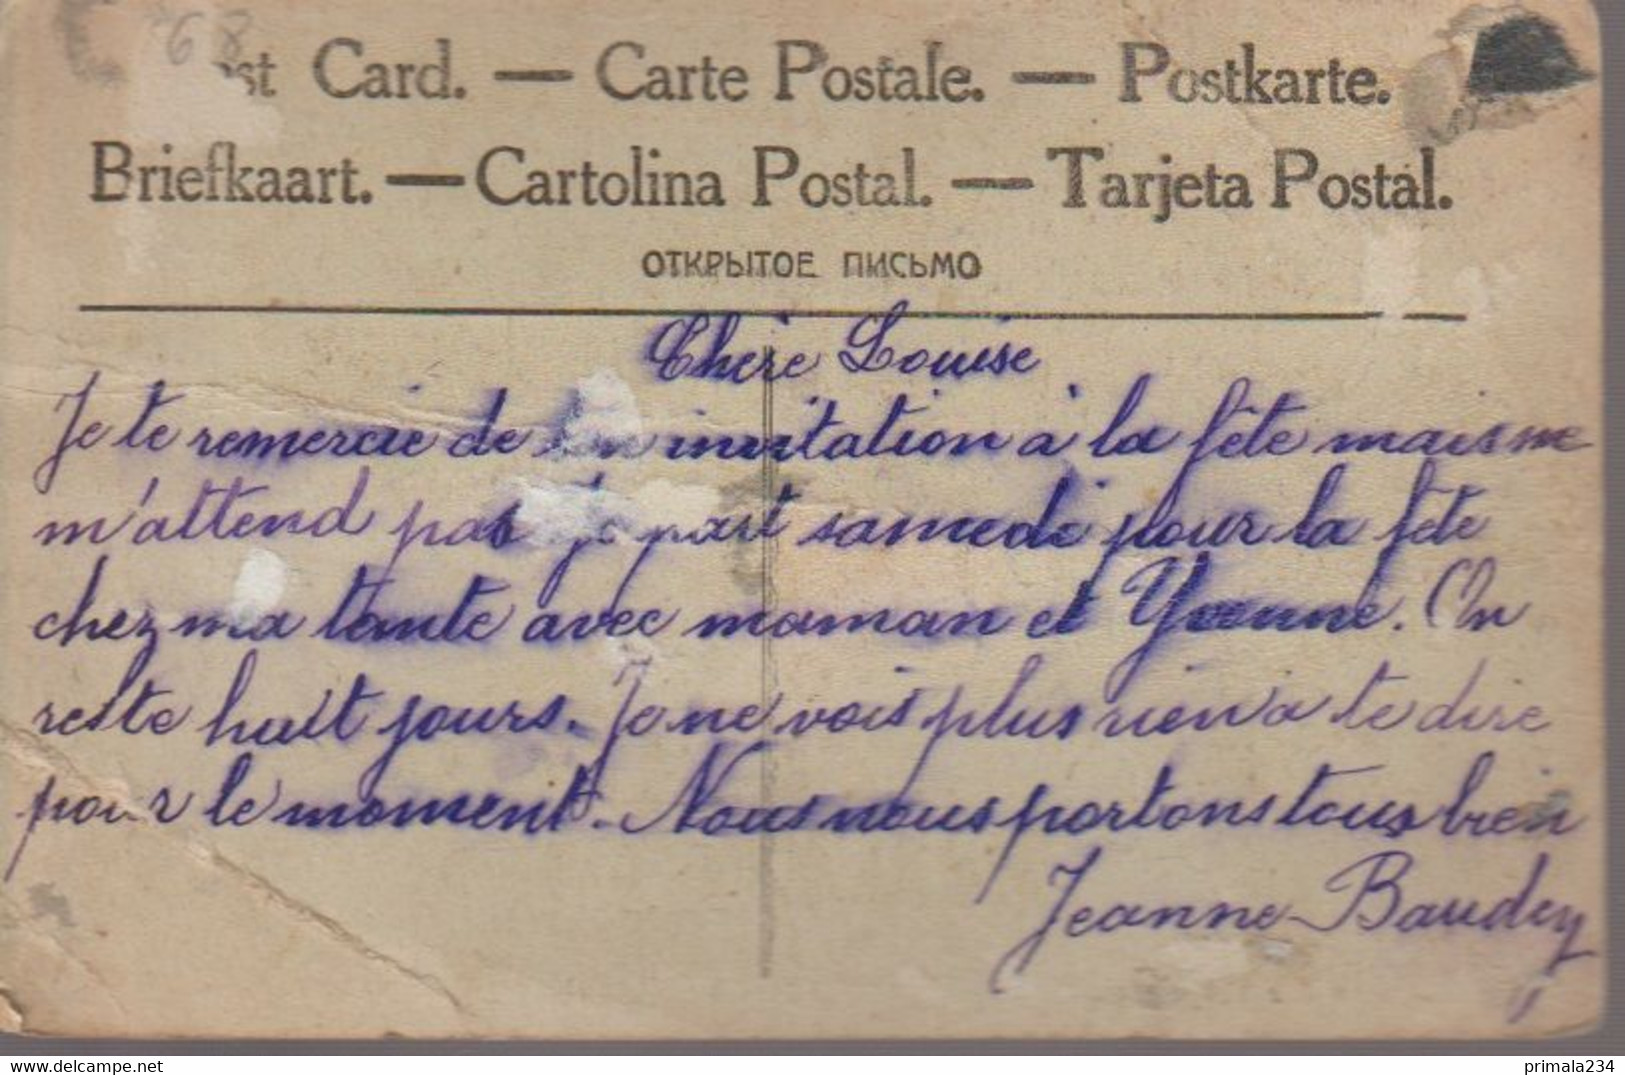 68
Post Card. — Carte Postale. — Postkarte.
Briefkaart. — Cartolina Postal. — Tarjeta Postal.
ОТКРЫТОЕ ПИСЬМО
Chère Louise
Je te remercie de ton invitation à la fête mais ne
m'attend pas je part samedi pour la fête
chez ma tante avec maman et Yvonne. On
reste huit jours. Je ne vois plus rien a te dire
pour le moment. Nous nous portons tous bien
Jeanne Baudry
www.delcampe.net
primala234